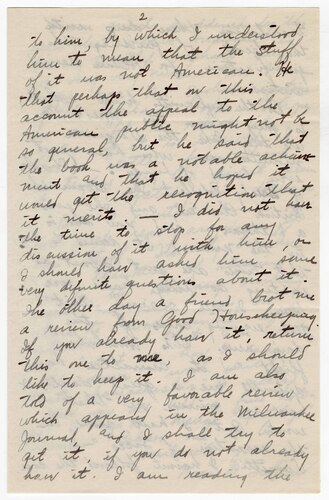 2
to him, by which I understood
him to mean that the stuff
of it was not American. He
that perhaps that on this
account the appeal to the
American public might not be
so general, but he said that
the book was a notable achieve-
ment and that he hoped it
would get the recognition that
it merits. — I did not have
the time to stop for any
discussion of it with him, or
I should have asked him some
very definite questions about it.
The other day a friend brot me
a review from Good Housekeeping.
If you already have it, return
this one to me, as I should
like to keep it. I am also
told of a very favorable review
which appeared in the Milwaukee
Journal, and I shall try to
get it, if you do not already
have it. I am reading the